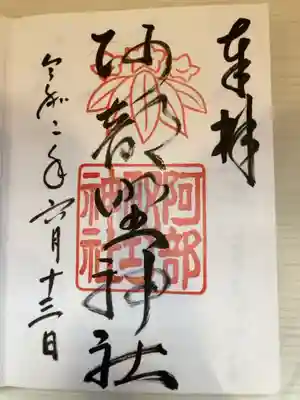 奉拝
阿部野神社
阿部
野
神社
令和二年六月十三日